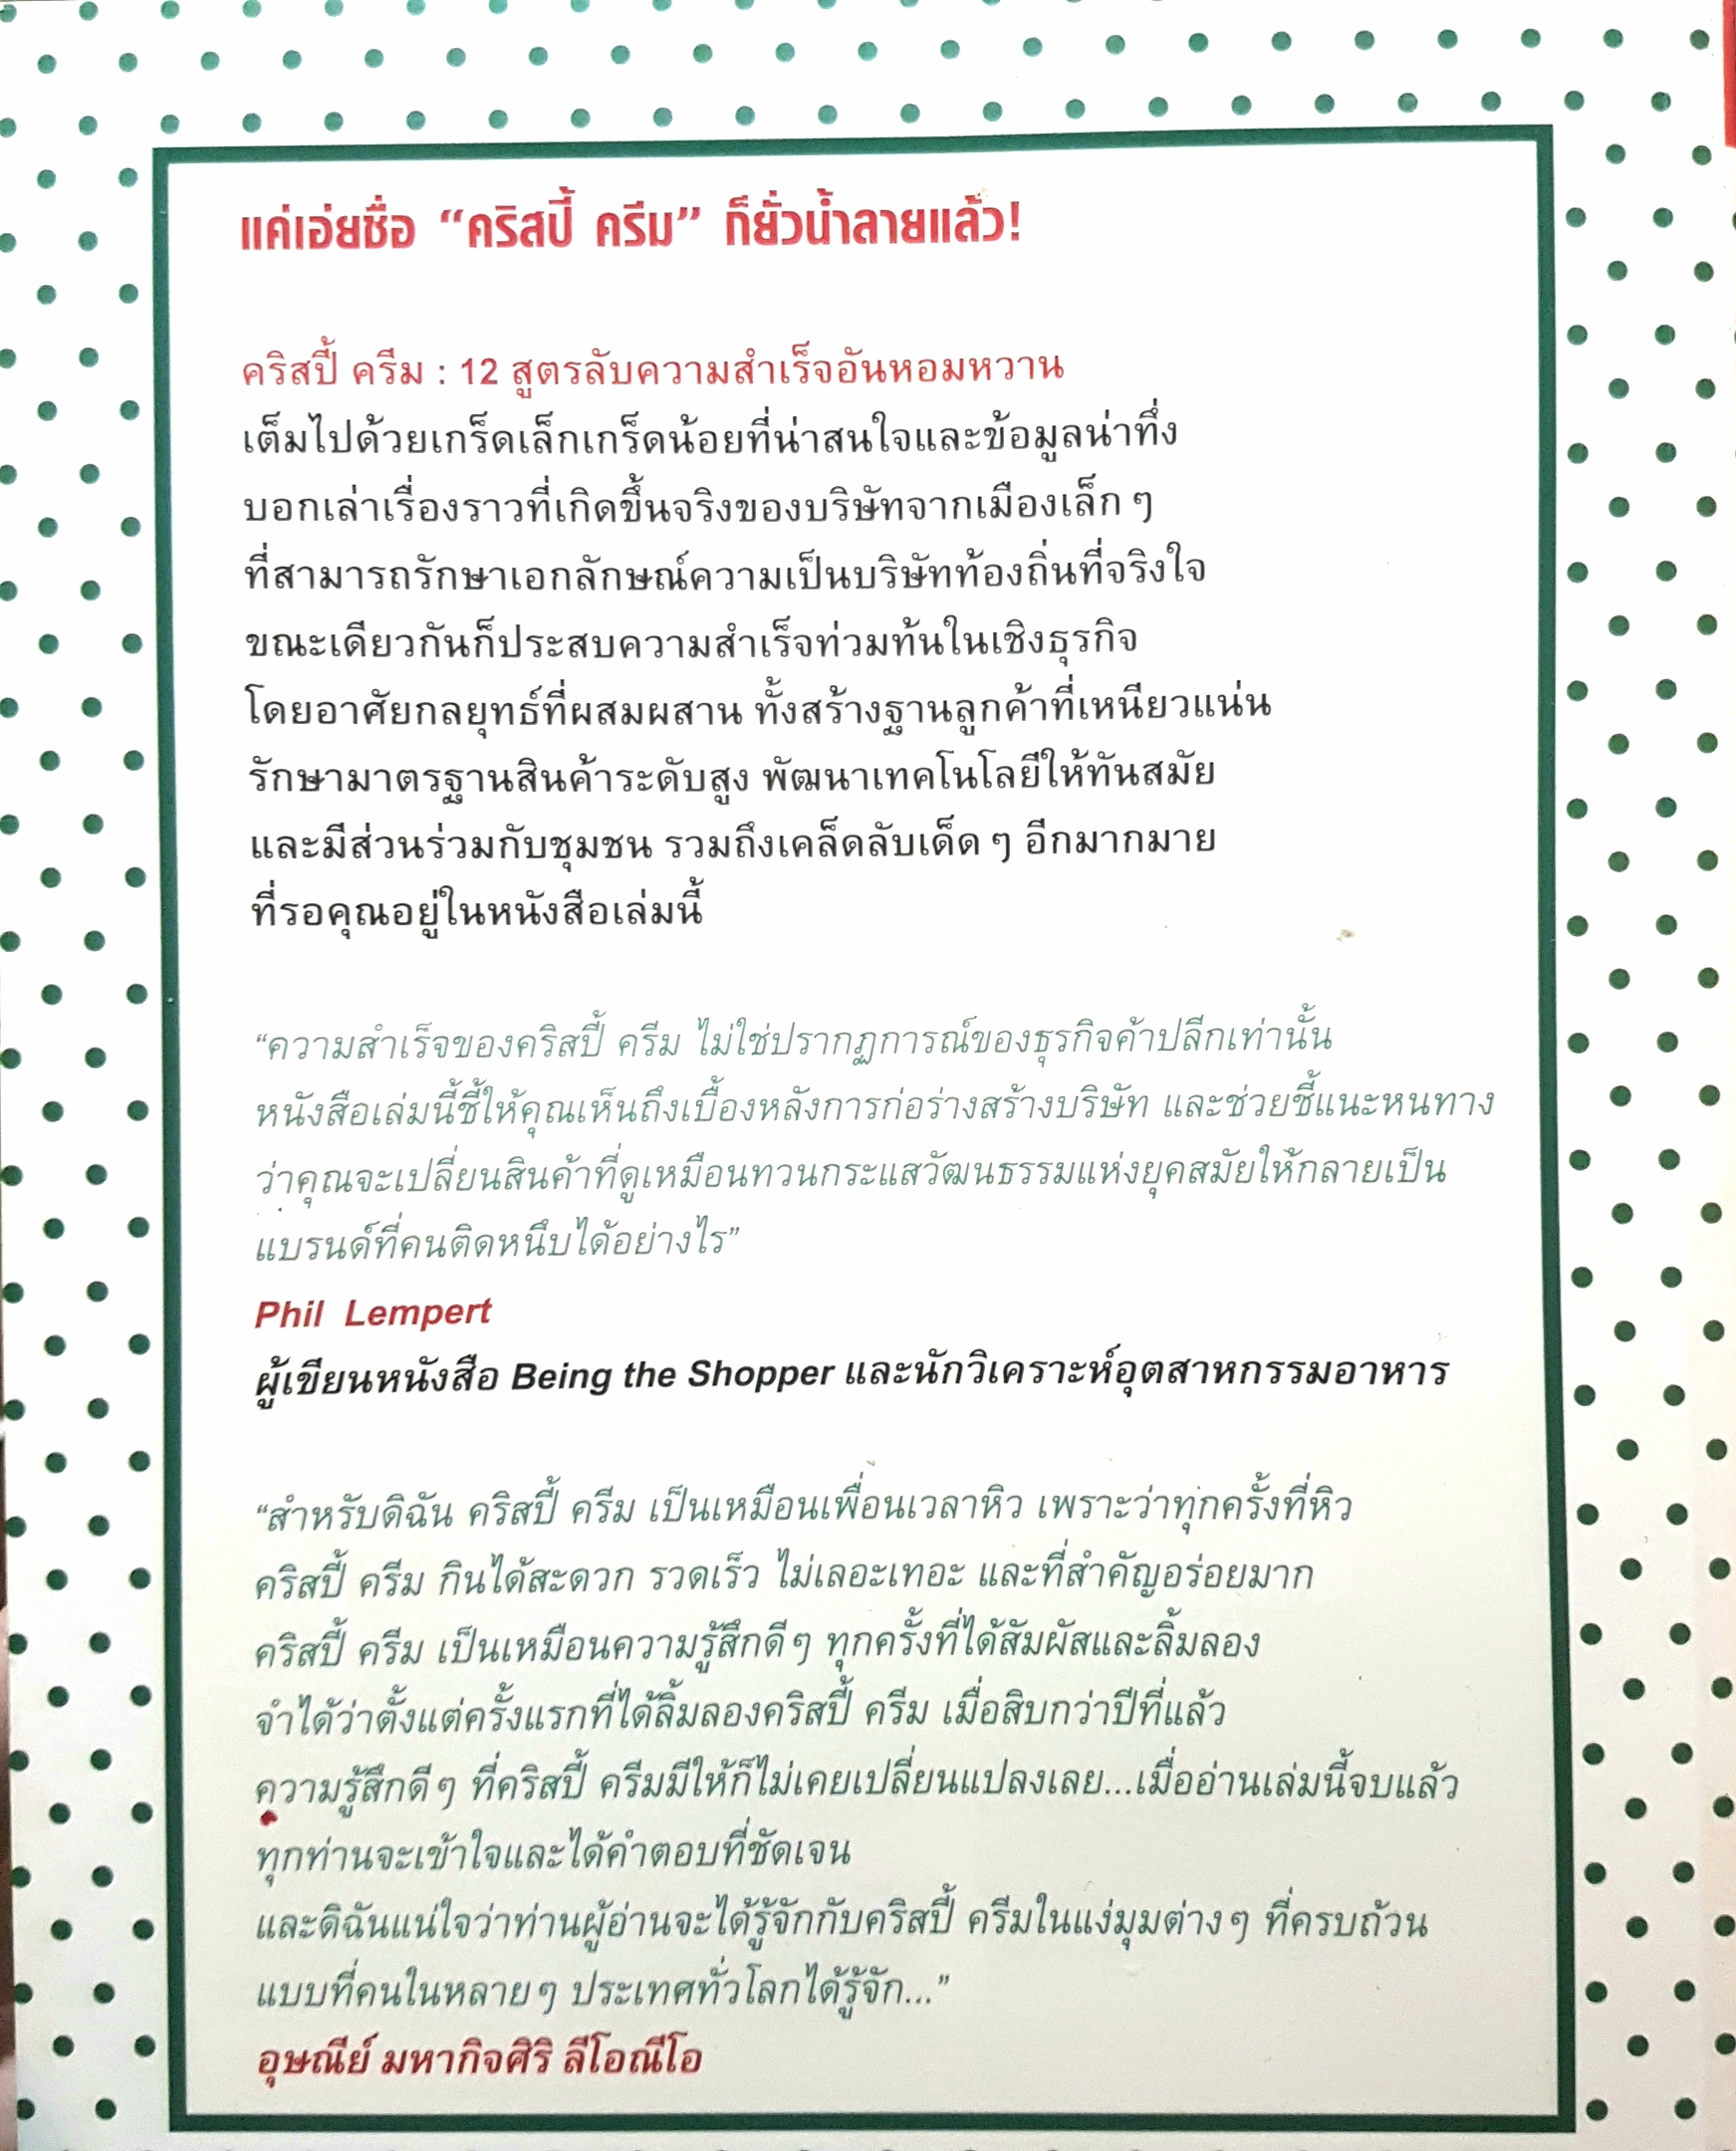 แค่เอ่ยชื่อ “คริสปี้ ครีม” ก็ยั่วน้ำลายแล้ว!
คริสปี้ ครีม : 12 สูตรลับความสำเร็จอันหอมหวาน
เต็มไปด้วยเกร็ดเล็กเกร็ดน้อยที่น่าสนใจและข้อมูลน่าทึ่ง
บอกเล่าเรื่องราวที่เกิดขึ้นจริงของบริษัทจากเมืองเล็ก ๆ
ที่สามารถรักษาเอกลักษณ์ความเป็นบริษัทท้องถิ่นที่จริงใจ
ขณะเดียวกันก็ประสบความสำเร็จท่วมท้นในเชิงธุรกิจ
โดยอาศัยกลยุทธ์ที่ผสมผสาน ทั้งสร้างฐานลูกค้าที่เหนียวแน่น
รักษามาตรฐานสินค้าระดับสูง พัฒนาเทคโนโลยีให้ทันสมัย
และมีส่วนร่วมกับชุมชน รวมถึงเคล็ดลับเด็ด ๆ อีกมากมาย
ที่รอคุณอยู่ในหนังสือเล่มนี้
“ความสำเร็จของคริสปี้ ครีม ไม่ใช่ปรากฏการณ์ของธุรกิจค้าปลีกเท่านั้น
หนังสือเล่มนี้ชี้ให้คุณเห็นถึงเบื้องหลังการก่อร่างสร้างบริษัท และช่วยชี้แนะหนทาง
ว่าคุณจะเปลี่ยนสินค้าที่ดูเหมือนทวนกระแสวัฒนธรรมแห่งยุคสมัยให้กลายเป็น
แบรนด์ที่คนติดหนึบได้อย่างไร”
Phil Lempert
ผู้เขียนหนังสือ Being the Shopper และนักวิเคราะห์อุตสาหกรรมอาหาร
“สำหรับดิฉัน คริสปี้ ครีม เป็นเหมือนเพื่อนเวลาหิว เพราะว่าทุกครั้งที่หิว
คริสปี้ ครีม กินได้สะดวก รวดเร็ว ไม่เลอะเทอะ และที่สำคัญอร่อยมาก
คริสปี้ ครีม เป็นเหมือนความรู้สึกดี ๆ ทุกครั้งที่ได้สัมผัสและลิ้มลอง
จำได้ว่าตั้งแต่ครั้งแรกที่ได้ลิ้มลองคริสปี้ ครีม เมื่อสิบกว่าปีที่แล้ว
ความรู้สึกดี ๆ ที่คริสปี้ ครีมมีให้ก็ไม่เคยเปลี่ยนแปลงเลย...เมื่ออ่านเล่มนี้จบแล้ว
ทุกท่านจะเข้าใจและได้คำตอบที่ชัดเจน
และดิฉันแน่ใจว่าท่านผู้อ่านจะได้รู้จักกับคริสปี้ ครีมในแง่มุมต่าง ๆ ที่ครบถ้วน
แบบที่คนในหลาย ๆ ประเทศทั่วโลกได้รู้จัก...”
อุษณีย์ มหากิจศิริ ลีโอณีโอ